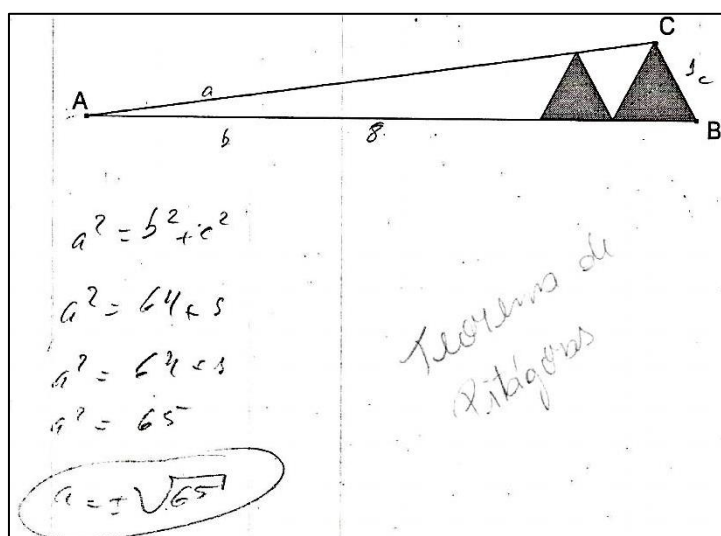 C
A
a
1 c
b
8
B
a² = b² + c²
a² = 64 + 1
a² = 64 + 1
a² = 65
a = ± √65
Teorema de
Pitágoras